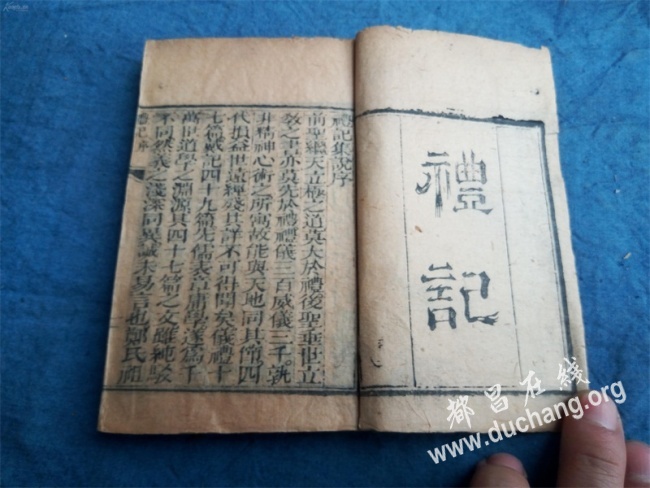 禮記
禮記集說序
前聖繼天立極之道莫大於禮後聖垂世立
教之書亦莫先於禮禮儀三百威儀三千孰
非精神心術之所寓故能與天地同其節四
代損益世遠經殘其詳不可得聞矣儀禮十
七篇戴記四十九篇先儒表章庸學遂爲千
萬世道學之淵源其四十七篇之文雖純駁
不同然義之淺深同異誠未易言也鄭氏祖
禮記序
都昌在线
www.duchang.org